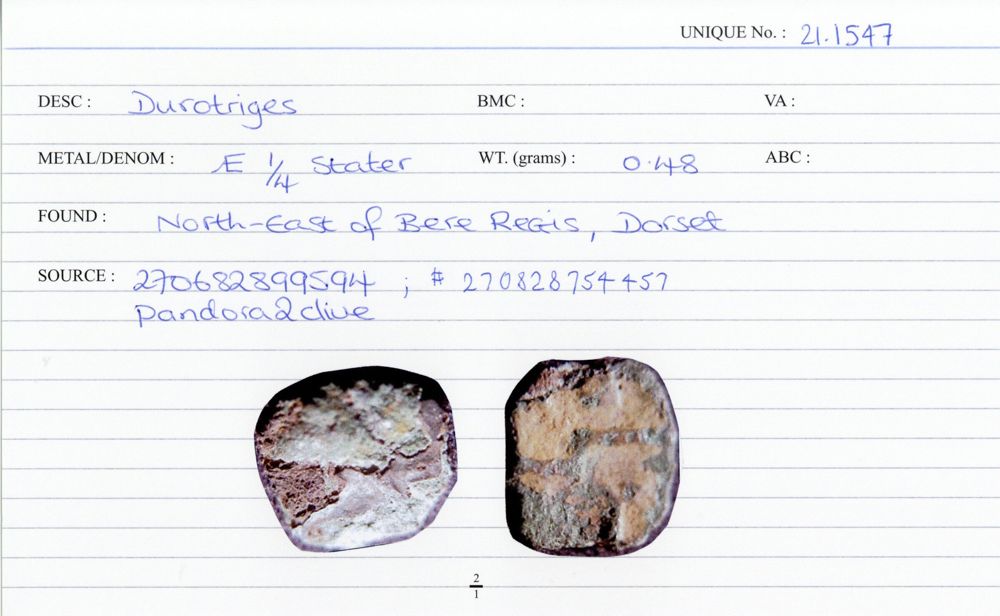 UNIQUE No. : 21.1547
DESC : Durotriges BMC : VA :
METAL/DENOM : Æ 1/4 Stater WT. (grams) : 0.48 ABC :
FOUND : North-East of Bere Regis, Dorset
SOURCE : 270682899594 ; # 270828754457
pandora2clive
2/1